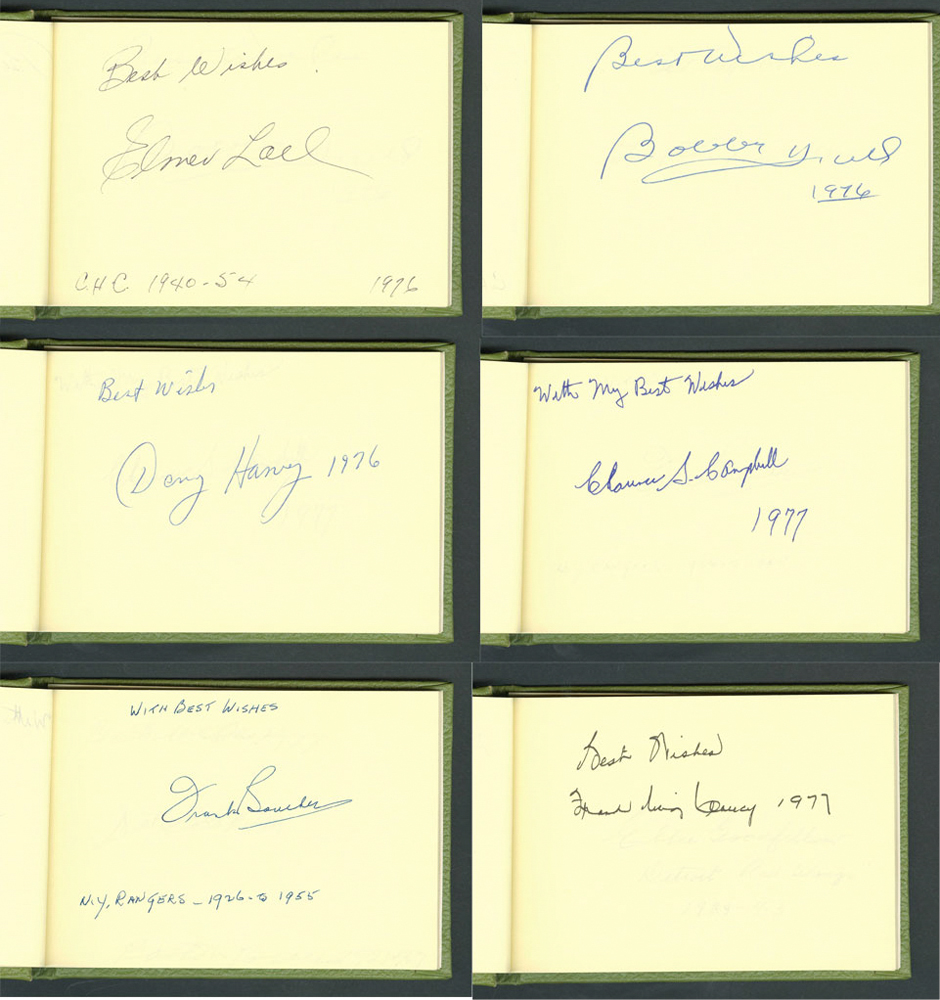 Best Wishes
Elmer Lach
C.H.C. 1940-54 1976
Best Wishes
Bobby Hull
1976
Best Wishes
Doug Harvey 1976
With My Best Wishes
Clarence S. Campbell
1977
WITH BEST WISHES
Frank Boucher
N.Y. RANGERS - 1926 - to 1955
Best Wishes
Frank King Clancy 1977